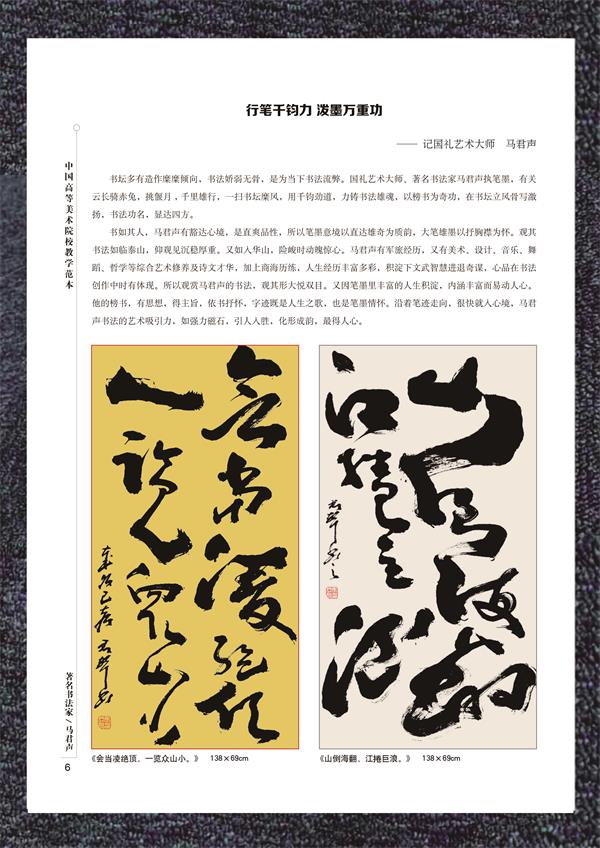 行笔千钧力 泼墨万重功
—— 记国礼艺术大师 马君声
书坛多有造作糜糜倾向，书法娇弱无骨，是为当下书法流弊。国礼艺术大师、著名书法家马君声执笔墨，有关
云长骑赤兔，挑偃月，千里雄行，一扫书坛糜风，用千钧劲道，力铸书法雄魂，以榜书为奇功，在书坛立风骨写激
扬，书法功名，显达四方。
书如其人，马君声有豁达心境，是直爽品性，所以笔墨意境以直达雄奇为质韵，大笔雄墨以抒胸襟为怀。观其
书法如临泰山，仰观见沉稳厚重。又如入华山，险峻时动魄惊心。马君声有军旅经历，又有美术、设计、音乐、舞
蹈、哲学等综合艺术修养及诗文才华，加上商海历练，人生经历丰富多彩，积淀下文武智慧进退奇谋，心品在书法
创作中时有体现。所以观赏马君声的书法，观其形大悦双目。又因笔墨里丰富的人生积淀，内涵丰富而易动人心。
他的榜书，有思想，得主旨，依书抒怀，字迹既是人生之歌，也是笔墨情怀。沿着笔迹走向，很快就入心境，马君
声书法的艺术吸引力，如强力磁石，引人入胜，化形成韵，最得人心。
中国高等美术院校教学范本
著名书法家/马君声
6
会当凌绝顶
一览众山小
山倒海翻
江捲巨浪
《会当凌绝顶、一览众山小。》 138×69cm
《山倒海翻、江捲巨浪。》 138×69cm